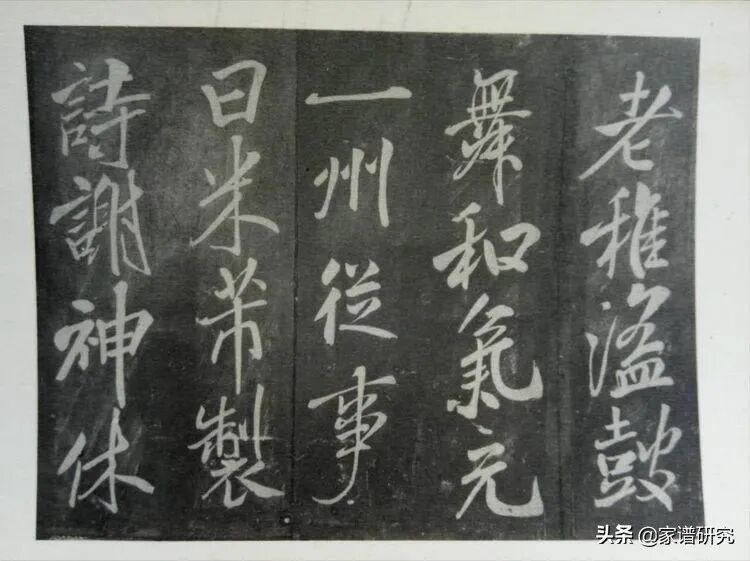 老稚溢鼓
舞和氣元
一州從事
曰米芾製
詩謝神休
头条 @家谱研究